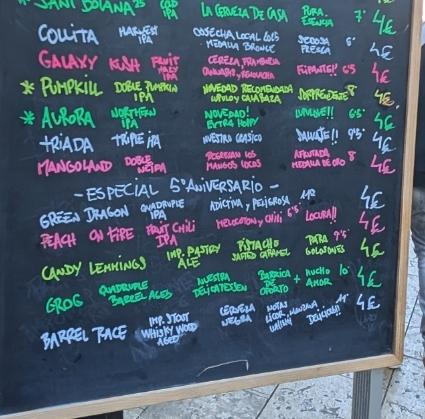 * SANTI BOIANA 25 COLD IPA LA CERVEZA DE CASA PURA ESENCIA 7° 4€
COLLITA HARVEST IPA COSECHA LOCAL 2025 MEDALLA BRONCE SEDOSA FRESCA 6° 4€
GALAXY KUSH FRUIT HAZY IPA CEREZA FRAMBUESA FLIPANTE!! 6'5 4€
* PUMPKILL DOBLE PUMPKIN IPA NOVEDAD RECOMENDADA LUPULO Y CALABAZA SORPRENDENTE 8° 4€
* AURORA NORTHERN IPA NOVEDAD! EXTRA HOPPY 6'5° 4€
TRIADA TRIPLE IPA NUESTRO CLASICO SALVAJE!! 9'5° 4€
MANGOLAND DOBLE NEIPA REGRESAN LOS MANGOS LOCOS AFRUTADA MEDALLA DE ORO 8° 4€
- ESPECIAL 5º ANIVERSARIO -
GREEN DRAGON QUADRUPLE IPA ADICTIVA Y PELIGROSA 11° 4€
PEACH ON FIRE FRUIT CHILI IPA MELOCOTON Y CHILI 6'5° LOCURA!! 4€
CANDY LEMMINGS IMP. PASTRY ALE PISTACHO SALTED CARAMEL PARA GOLOSONES 9'5° 4€
GROG QUADRUPLE BARREL AGED NUESTRA DELICATESSEN BARRICA DE OPORTO + MUCHO AMOR 10° 4€
BARREL RACE IMP. STOUT WHISKY WOOD AGED CERVEZA NEGRA NOTAS LICOR, MANZANA DELICIOSA!! 11° 4€